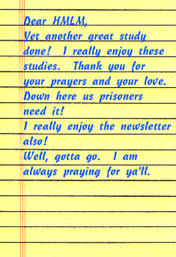 Dear HMLM,
Yet another great study
done!  I really enjoy these
studies.  Thank you for
your prayers and your love.
Down here us prisoners
need it!
I really enjoy the newsletter
also!
Well, gotta go.  I am
always praying for ya'll.